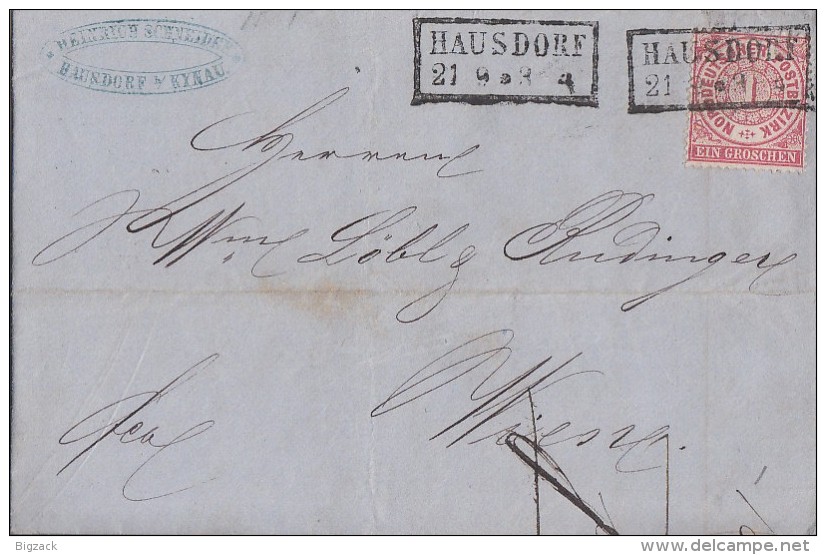 HEINRICH SCHNEIDER
HAUSDORF b/ KYNAU
HAUSDORF
21 9 * 3-4
HAUSDORF
21
NORDDEUTSCHER POSTBEZIRK
1
EIN GROSCHEN
Herren
Wm Löbl & Rudinger
Wien.
Bigzack
delcampe.net